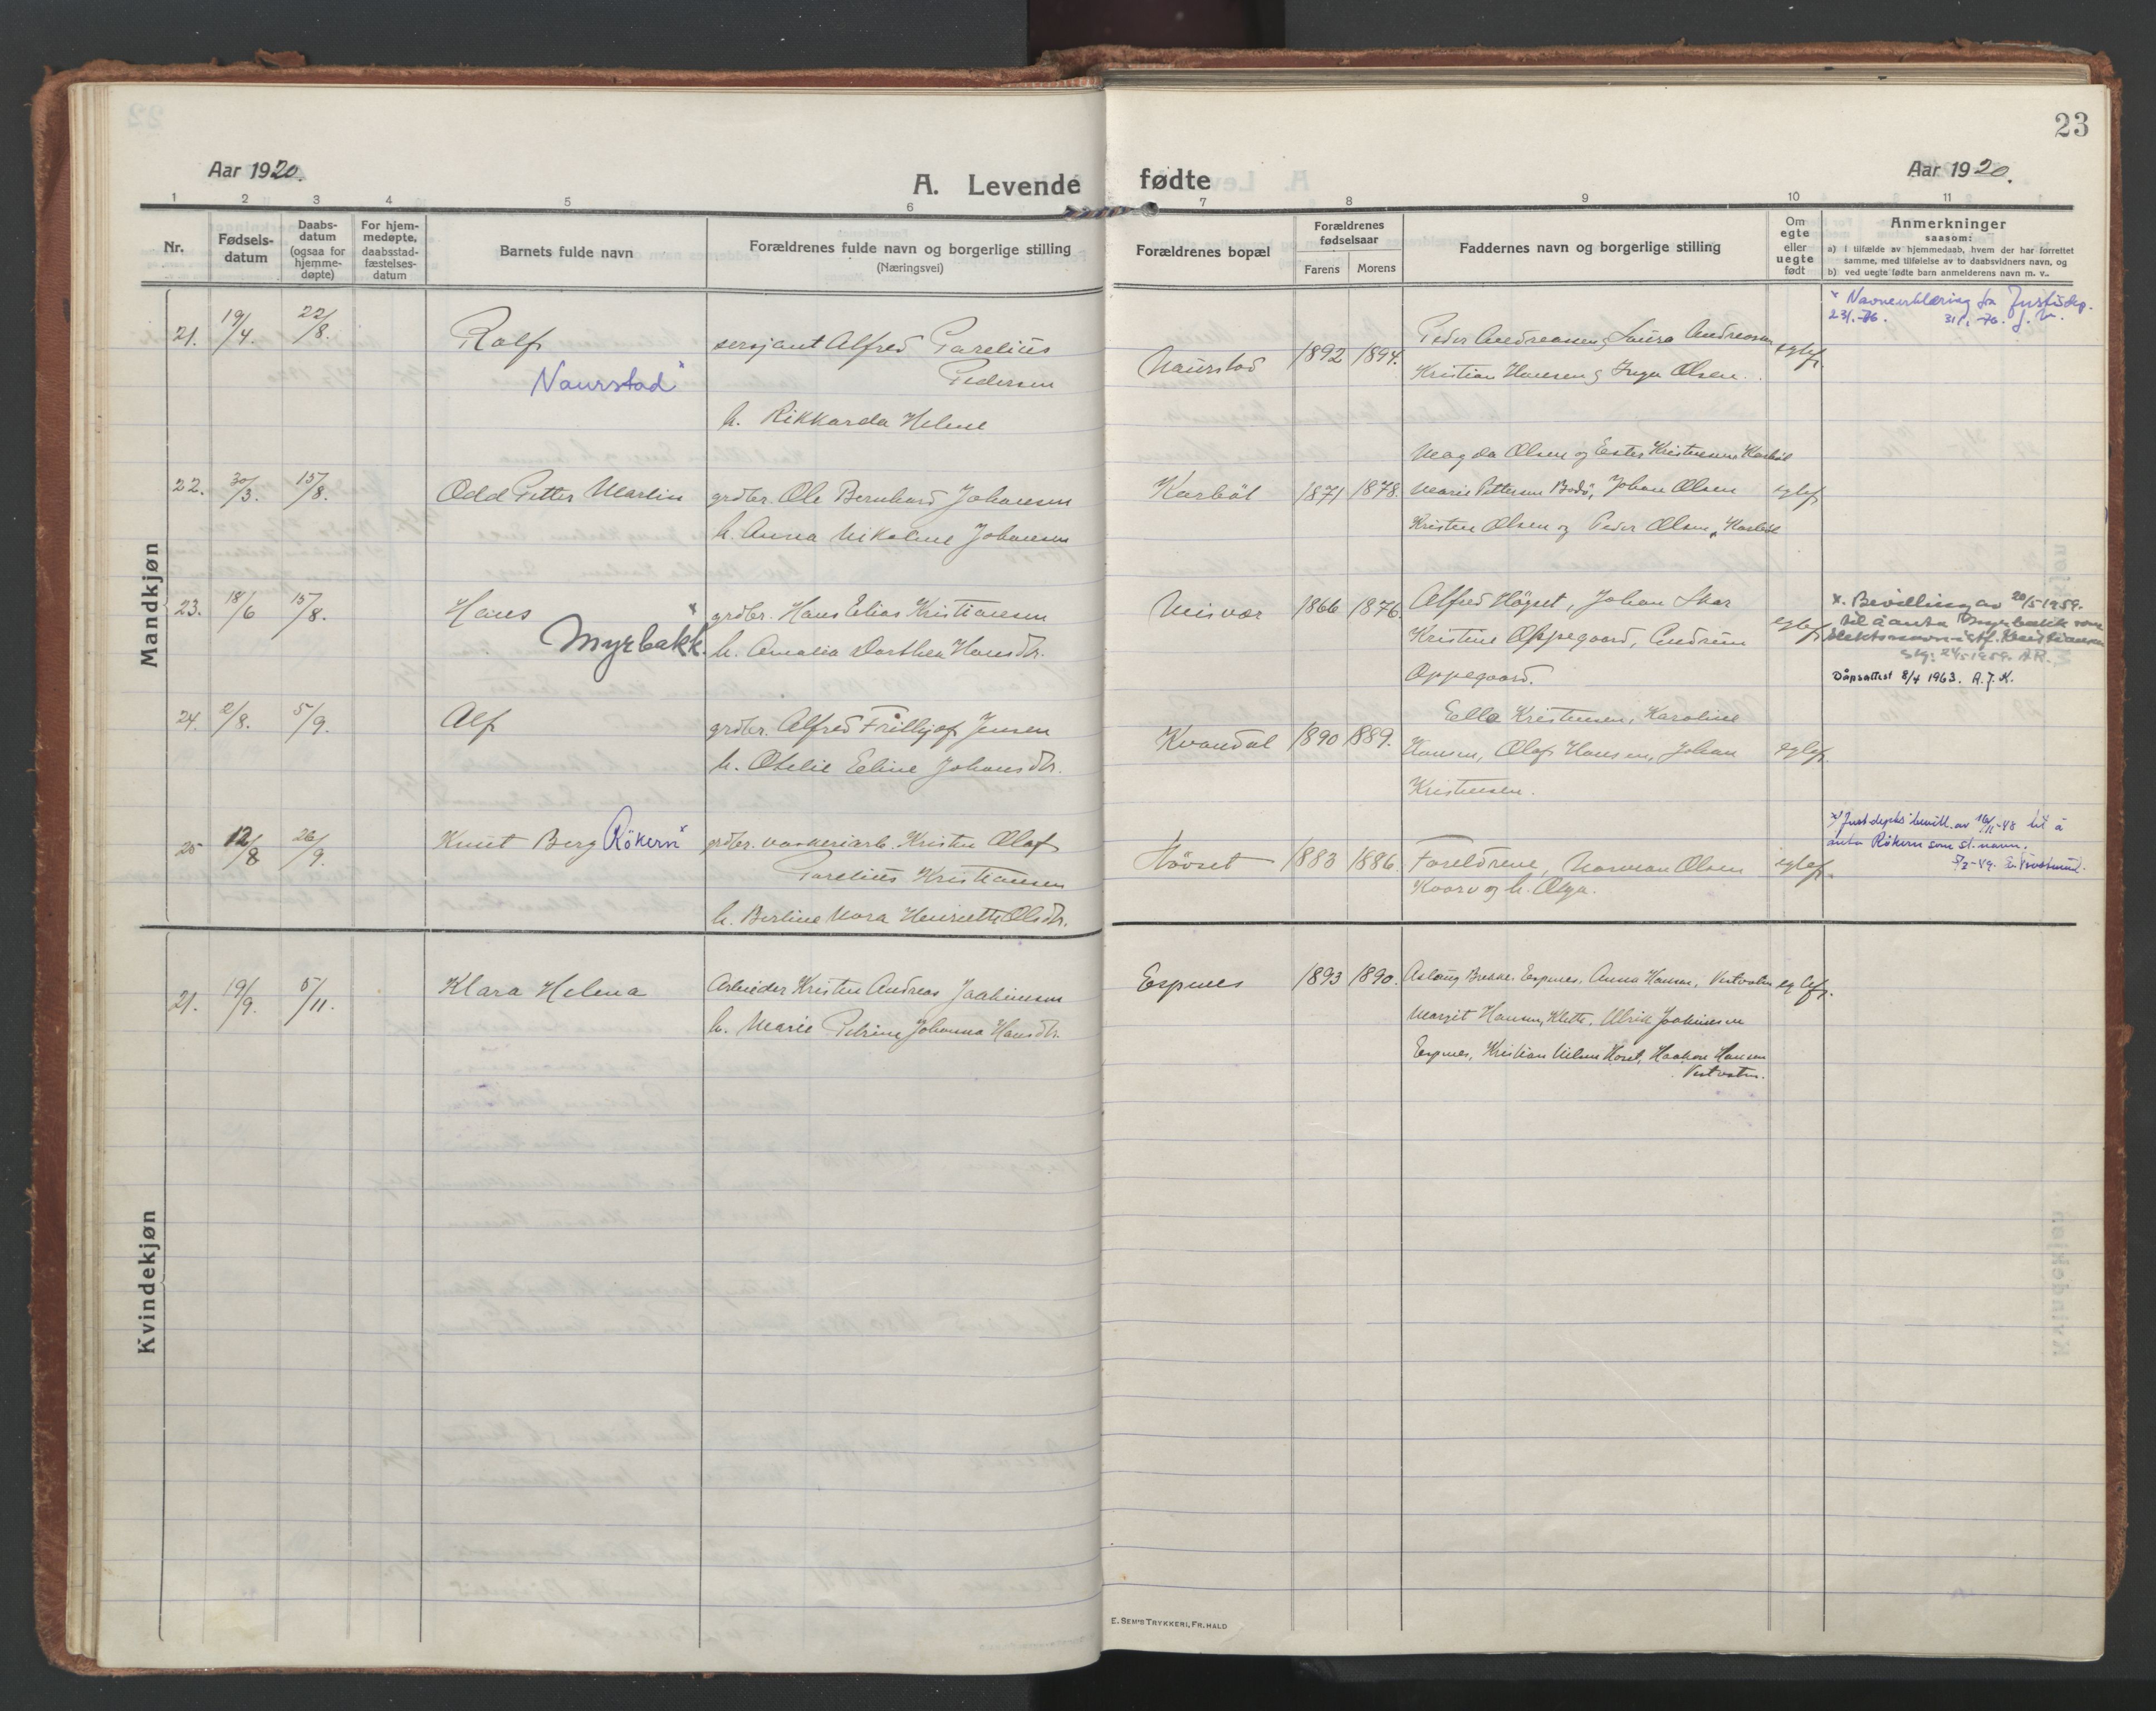 23
Aar 1920.
A. Levende fødte
Aar 1920.
1 2 3 4 5 6 7 8 9 10 11
Nr.
Fødsels-
datum
Daabs-
datum
(ogsaa for
hjemme-
døpte)
For hjem-
medøpte,
daabsstad-
fæstelses-
datum
Barnets fulde navn
Forældrenes fulde navn og borgerlige stilling
(Næringsvei)
Forældrenes bopæl
Forældrenes
fødselsaar
Farens Morens
Faddernes navn og borgerlige stilling
Om
egte
eller
uegte
født
Anmerkninger
saasom:
a) i tilfælde av hjemmedaab, hvem der har forrettet
samme, med tilføielse av to daabsvidners navn, og
b) ved uegte fødte barn anmelderens navn m. v..
Mandkjøn
21. 19/4. 22/8. Rolf
Naurstad x
sersjant Alfred Parelius
Pedersen
h. Rikkarda Helene
Naurstad 1892 1894.
Peder Andreassen, Laura Andreassen
Kristian Hansen, Inga Olsen.
egtef.
x Navneerklæring fra Justisdep.
23/1.-76. 31/1.-76.
22. 30/3. 15/8. Odd Petter Martin
grdbr. Ole Bernhard Johansen
h. Anna Nikoline Johansen
Karbøl 1871 1878.
Magda Olsen og Ester Kristensen Karbøl
Marie Pettersen Bodø, Johan Olsen
Kristen Olsen og Peder Olsen, Karbøl
egtef.
23. 18/6 15/8. Hans x
Myrbakk.
grdbr. Hans Elias Kristiansen
h. Amalia Dorthea Hansdtr.
Misvær 1866 1876.
Alfred Høgset, Johan Skar
Kristine Oppegaard, Andrine
Oppegaard.
egtef.
x. Bevilling av 20/5-1959.
til å anta Myrbakk som
slektsnavn istf. Kristiansen
24/5-1959. A.R.
Dåpsattest 8/4 1963. A.J.K.
24. 2/8. 5/9. Alf
grdbr. Alfred Frithjof Jensen
h. Otelie Eline Johansdtr.
Kvandal 1890 1889.
Ella Kristensen, Karoline
Hansen, Olaf Hansen, Johan
Kristensen.
egtef.
25 12/8 26/9. Knut Berg Røkern x
grdbr. vaskeriarb. Kristen Olaf
Parelius Kristiansen
h. Berline Nora Henriette Olsdtr.
Høvset 1883 1886.
Foreldrene, Norman Olsen
Kvarv og h. Olga.
egtef.
x) Just.dep's bevill. av 16/11-48 til å
anta Røkern som sl.navn.
5/2-49.
Kvindekjøn
21. 19/9. 5/11. Klara Helena
Arbeider Kristen Andreas Joakimsen
h. Marie Petrine Johanna Hansdtr.
Espnes 1893 1890.
Aslaug Brekke. Espnes, Anna Hansen, Vestvatn
Margit Hansen, Klette, Ulrik Joakimsen
Espnes, Kristian Nilsen Horet, Haakon Hansen
Vestvatn.
egtef.
E. SEM'S TRYKKERI, FR.HALD